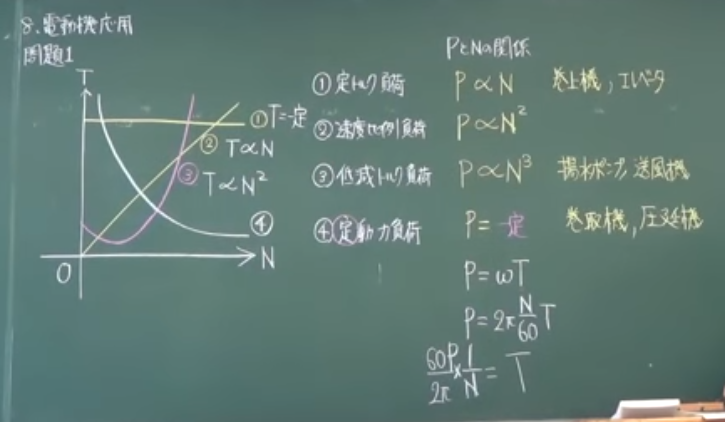 8. 電動機応用
問題1
T
①T=一定
② T∝N
③ T∝N²
④
N
O
PとNの関係
①定トルク負荷 P∝N 巻上機, エレベータ
②速度比例負荷 P∝N²
③低減トルク負荷 P∝N³ 揚水ポンプ, 送風機
④定動力負荷 P=一定 巻取機, 圧延機
P=ωT
P=2π N/60 T
60P/2π × 1/N = T